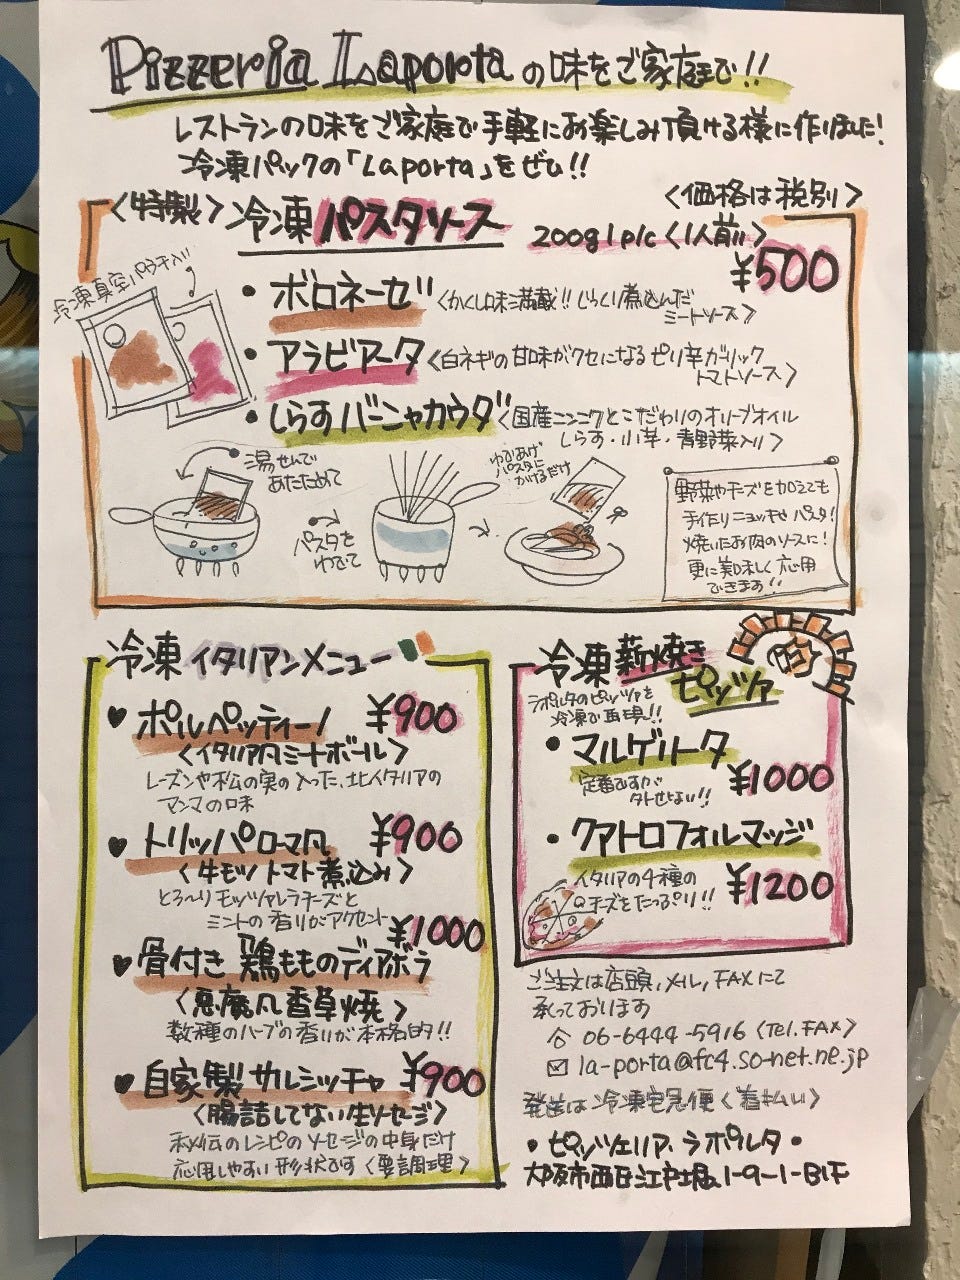 Pizzeria Laportaの味をご家庭で!!
レストランの味をご家庭で手軽にお楽しみ頂ける様に作りました!
冷凍パックの「Laporta」をぜひ!!
〈価格は税別〉
〈特製〉冷凍パスタソース
200g1p/c〈1人前〉
¥500
冷凍真空パウチ入り
・ボロネーゼ〈かくし味満載!!じっくり煮込んだ
ミートソース〉
・アラビアータ〈白ネギの甘味がクセになるピリ辛ガーリック
トマトソース〉
・しらすバーニャカウダ〈国産ニンニクとこだわりのオリーブオイル
しらす・小芋・青野菜入り〉
湯せんで
あたためて
パスタを
ゆでて
ゆであげ
パスタに
かけるだけ
野菜やチーズを加えても
手作りニョッキやパスタ!
焼いたお肉のソースに!
更に美味しく応用
できます!!
冷凍イタリアンメニュー
♥ポルペッティーノ ¥900
〈イタリア風ミートボール〉
レーズンや松の実の入った、北イタリアの
マンマの味
♥トリッパローマ風 ¥900
〈牛モツトマト煮込み〉
とろ〜りモッツァレラチーズと
ミントの香りがアクセント
¥1000
♥骨付き鶏もものディアボラ
〈悪魔風香草焼〉
数種のハーブの香りが本格的!!
♥自家製サルシッチャ ¥900
〈腸詰してない生ソーセージ〉
秘伝のレシピのソーセージの中身だけ
応用しやすい形状です〈要調理〉
冷凍薪焼き
ピッツァ
ラポルタのピッツァを
冷凍で再現!!
・マルゲリータ
定番ですが
外せない!!
¥1000
・クアトロフォルマッジ
イタリアの4種の
チーズをたっぷり!!
¥1200
ご注文は店頭,メール,FAXにて
承っております
06-6444-5916〈TEL.FAX〉
la-porta@fc4.so-net.ne.jp
発送は冷凍宅急便〈着払い〉
・ピッツェリア ラポルタ・
大阪市西区江戸堀1-9-1-B1F